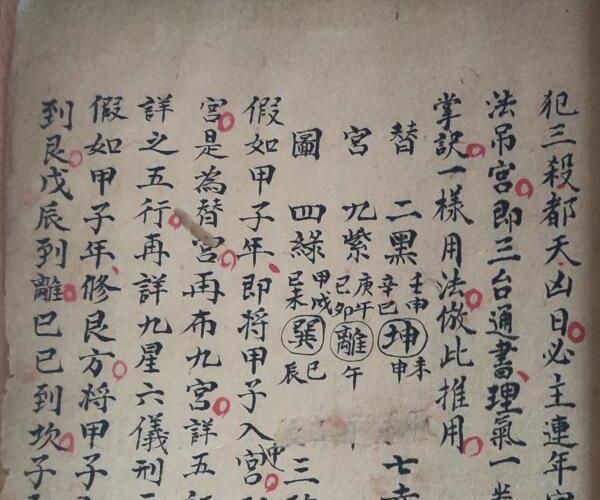 犯三殺都天凶日必主連年
法吊宮即三台通書理氣一
掌訣一樣用法倣此推用
替 二黑 壬申 辛巳 坤 未 申 七赤
宮 九紫 庚午 己卯 離 午
圖 四綠 甲戌 己未 巽 巳 辰 三
假如甲子年即將甲子入中宮
宮是為替宮再布九宮詳五
詳之五行再詳九星六儀刑
假如甲子年修艮方將甲子
到艮戊辰到離己巳到坎子